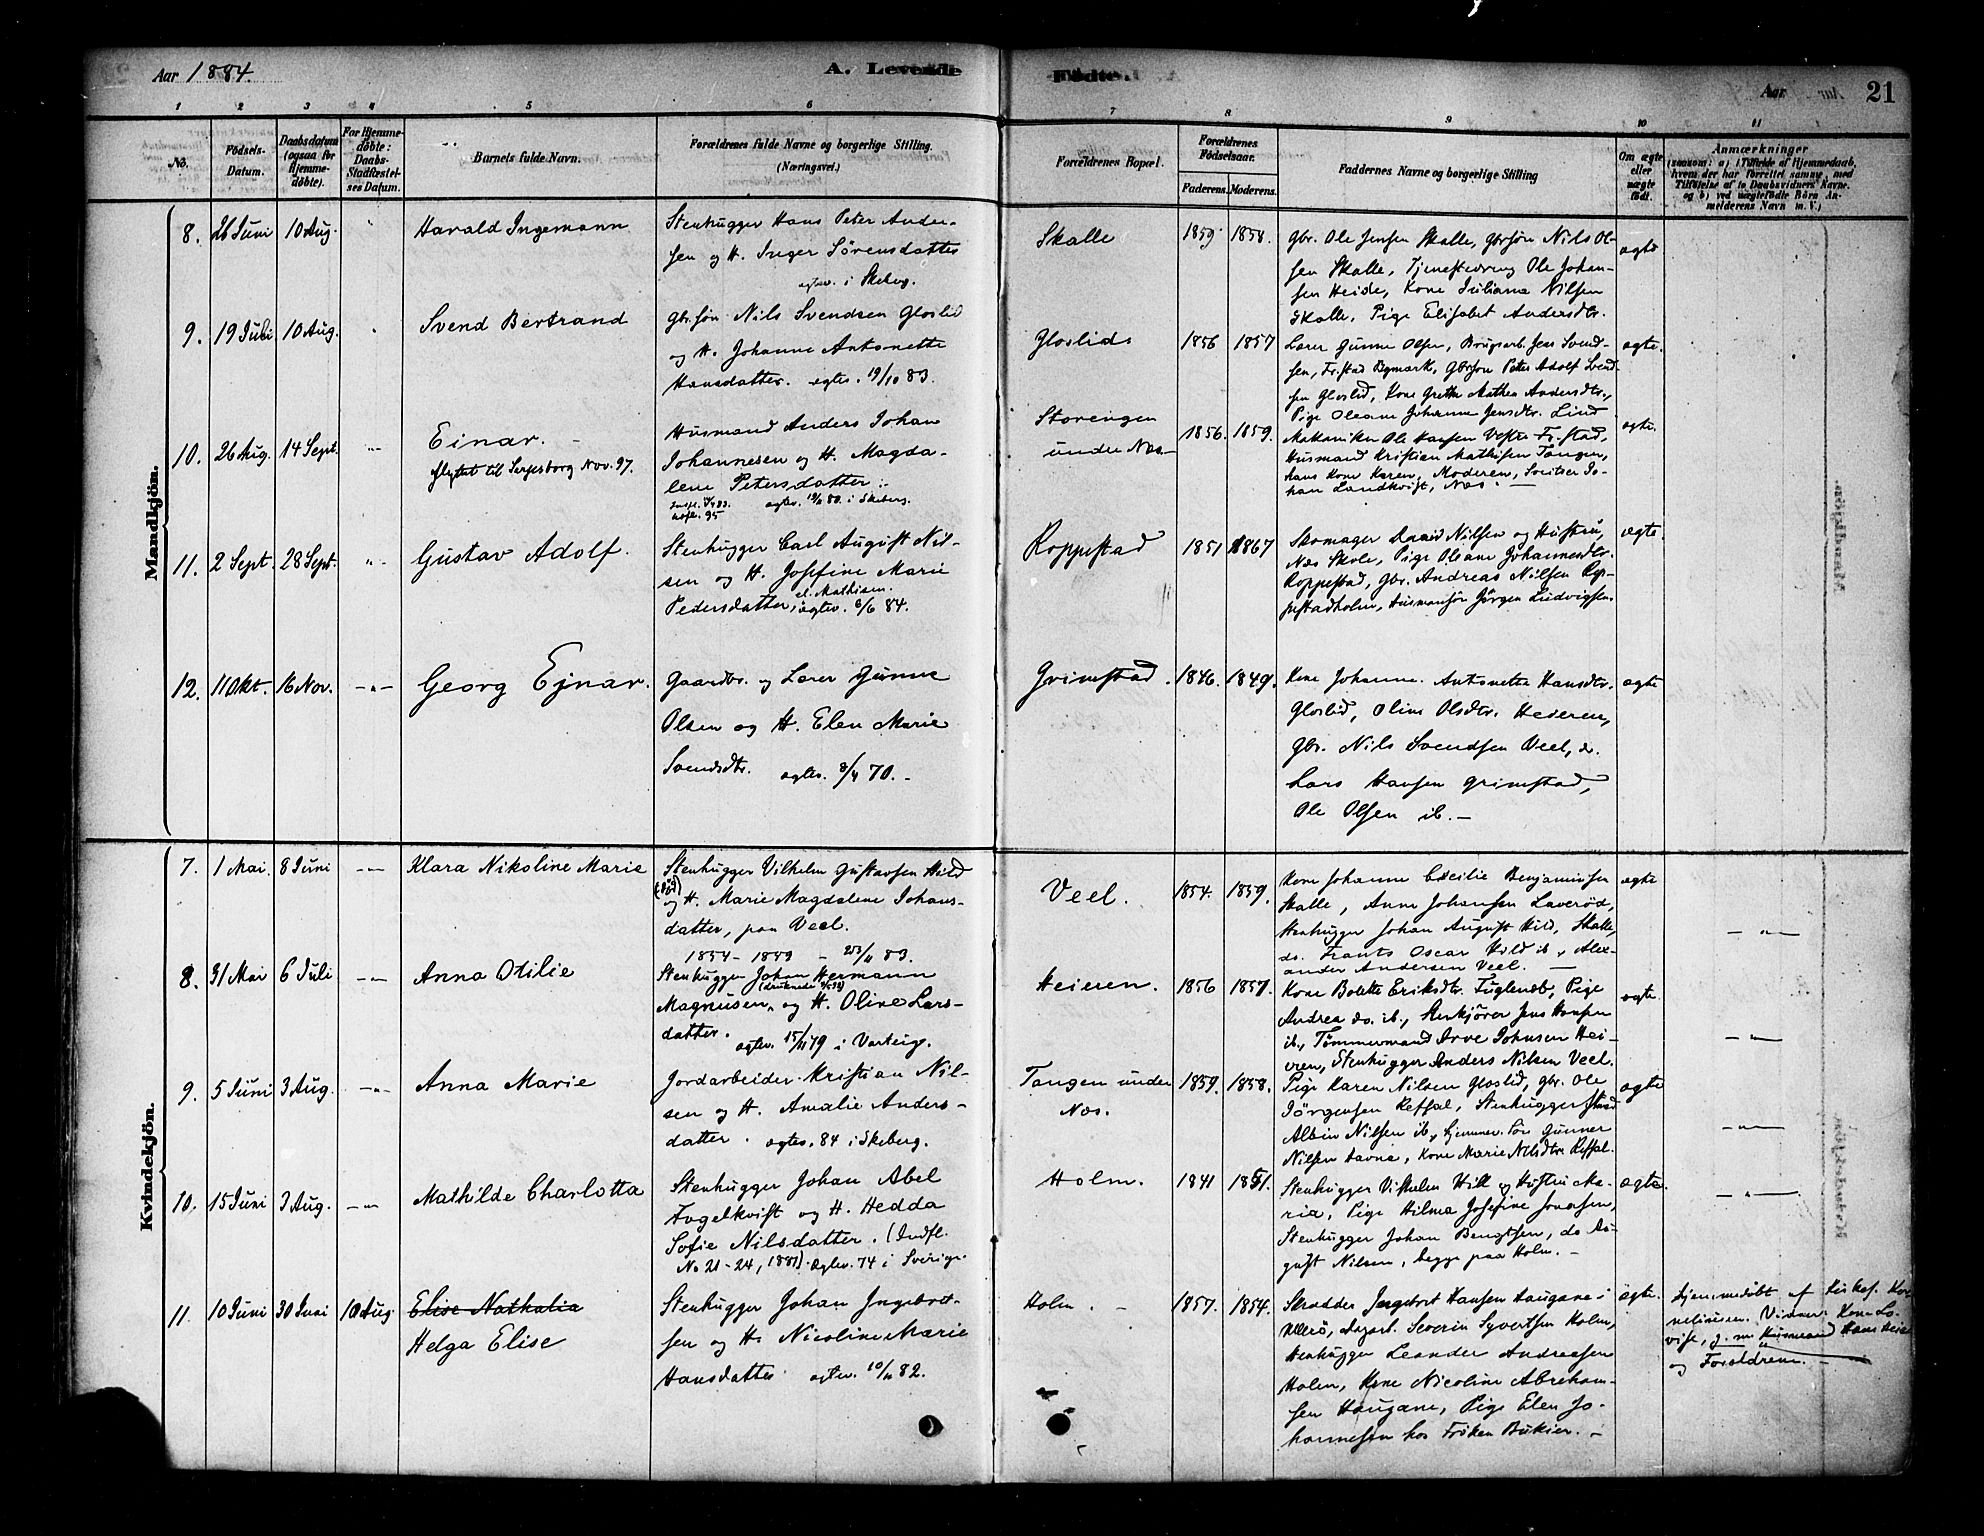 Aar 1884.
A. Levende
Fødte.
Aar
21
1 2 3 4 5 6 7 8 9 10 11
No.
Fødsels-Datum.
Daabsdatum (ogsaa for Hjemmedøbte).
For Hjemmedøbte: Daabs-Stadfæstelses Datum.
Barnets fulde Navn.
Forældrenes fulde Navne og borgerlige Stilling. (Næringsvei.)
Forældrenes Bopæl.
Forældrenes Fødselsaar.
Faderens. Moderens.
Faddernes Navne og borgerlige Stilling
Om ægte eller uægte født.
Anmærkninger
(saasom: a) i Tilfælde af Hjemmedaab, hvem der har forrettet samme, med Tilføielse af to Daabsvidners Navne, og b) ved uægtefødte Børn Anmelderens Navn m. V.)
Mandkjön.
8. 26 Juni 10 Aug. Harald Ingemann
Stenhugger Hans Peter Ander-
sen og H. Inger Sörensdatter
ægtev. i Skeberg.
Skalle 1859 1858.
Gbr. Ole Jensen Skalle, Gbrsön Nils Ol-
sen Skalle, Tjenestedreng Ole Johan-
sen Heide, Kone Juliane Nilsen
Skalle, Pige Elisabet Andersdtr.
ægte
9. 19 Juli 10 Aug. Svend Bertrand
Gbrsön Nils Svendsen Gloslid
og H. Johanne Antonette
Hansdatter. ægtev. 19/10 83.
Gloslid 1856 1857
Lærer Gunne Olsen, Brugsarb. Jens Svend-
sen, Fr.stad Bymark, Gbrsön Peter Adolf Svend-
sen Gloslid, Kone Grethe Mathea Andersdtr.,
Pige Oleane Johanne Jensdtr. Lind
ægte.
10. 26 Aug. 14 Sept. Einar.
flyttet til Sarpsborg Nov. 97.
Husmand Anders Johan
Johannesen og H. Magda-
lene Petersdatter.
ægtev. i Skeberg.
Storengen
under Næs
1856. 1859.
Mekaniker Ole Hansen Vestre Fr.stad,
Husmand Kristian Mathisen Tangen,
hans Kone Karen, Moderen, Sveitser Jo-
han Landkvist, Næs. —
ægte.
11. 2 Sept. 28 Sept. Gustav Adolf.
Stenhugger Carl August Nil-
sen og H. Josefine Marie
el. Mathisen.
Pedersdatter, ægtev. 6/6 84.
Roppestad 1851 1867
Skomager David Nilsen og Hustru,
Næs Skole, Pige Oleane Johannesdtr.
Roppestad, Gbr. Andreas Nilsen Rop-
pestadholm, Husmansön Jörgen Ludvigsen
ægte
12. 11 Okt. 16 Nov. Georg Ejnar.
Gaardbr. og Lærer Gunne
Olsen og H. Elen Marie
Svendsdtr. ægtev. 8/4 70. -
Grimstad. 1846. 1849.
Kone Johanne Antonette Hansdtr.
Gloslid, Oline Olsdtr. Hederen,
Gbr. Nils Svendsen Veel, do.
Lars Hansen Grimstad,
Ole Olsen ib. —
ægte
Kvindekjön.
7. 1 Mai 8 Juni Klara Nikoline Marie
Stenhugger Vilhelm Gustavsen Hild
(död)
og H. Marie Magdalene Johans-
datter, paa Veel.
1854 - 1859 - 23/11 83.
Veel. 1854. 1859.
Kone Johanne Cecilie Benjaminsen
Skalle, Anne Johansen Laveröd,
Stenhugger Johan August Hild, Skalle,
do. Frants Oscar Hild ib., Alex-
ander Andersen Veel. —
ægte
8. 31 Mai 6 Juli Anna Otilie
Stenhugger Johan Hermann
Magnusen, og H. Oline Lars-
datter. ægtev. 15/11 79 i Varteig.
Heieren. 1856 1857.
Kone Bolette Eriksdtr. Fuglenæb, Pige
Andrea do. ib., Stenkjörer Jens Hansen
ib., Tömmermand Arve Johnsen Hei-
eren, Stenhugger Anders Nilsen Veel.
ægte.
9. 5 Juni 3 Aug. Anna Marie
Jordarbeider Kristian Nil-
sen og H. Amalie Anders-
datter. ægtev. 84 i Skeberg.
Tangen under
Næs.
1859. 1858.
Pige Karen Nilsen Gloslid, Gbr. Ole
Jörgensen Refsal, Stenhugger
Albin Nilsen ib., Gunner
Nilsen Havna, Kone Marie Nilsdtr. Refsal.
ægte
10. 15 Juni 3 Aug. Mathilde Charlotta
Stenhugger Johan Abel
Fogelkvist og H. Hedda
Sofie Nilsdatter. (Indfl.
No 21-24, 1881). ægtev. 74 i Sverige.
Holm. 1841 1851.
Stenhugger Vilhelm Hill og Hustru Ma-
ria, Pige Hilma Josefine Jonasen,
Stenhugger Johan Bengtsen, do Au-
gust Nilsen, begge paa Holm. -
ægte.
11. 10 Juni 30 Juni 10 Aug. Elise Nathalia
Helga Elise
Stenhugger Johan Ingebret-
sen og H. Nicoline Marie
Hansdatter ægtev. 10/11 82.
Holm. - 1857. 1854.
Skrædder Ingebret Hansen Haugane i
Ulleröe, Dagarb. Severin Syvertsen Holm,
Stenhugger Leander Andreasen
Holm, Kone Nicoline Abraham-
sen Haugane, Pige Elen Jo-
hannesen hos Fröken Bukier. -
ægte.
Hjemmedöbt af
Vidner: Kone Lo-
vise,
og Forældrene. -